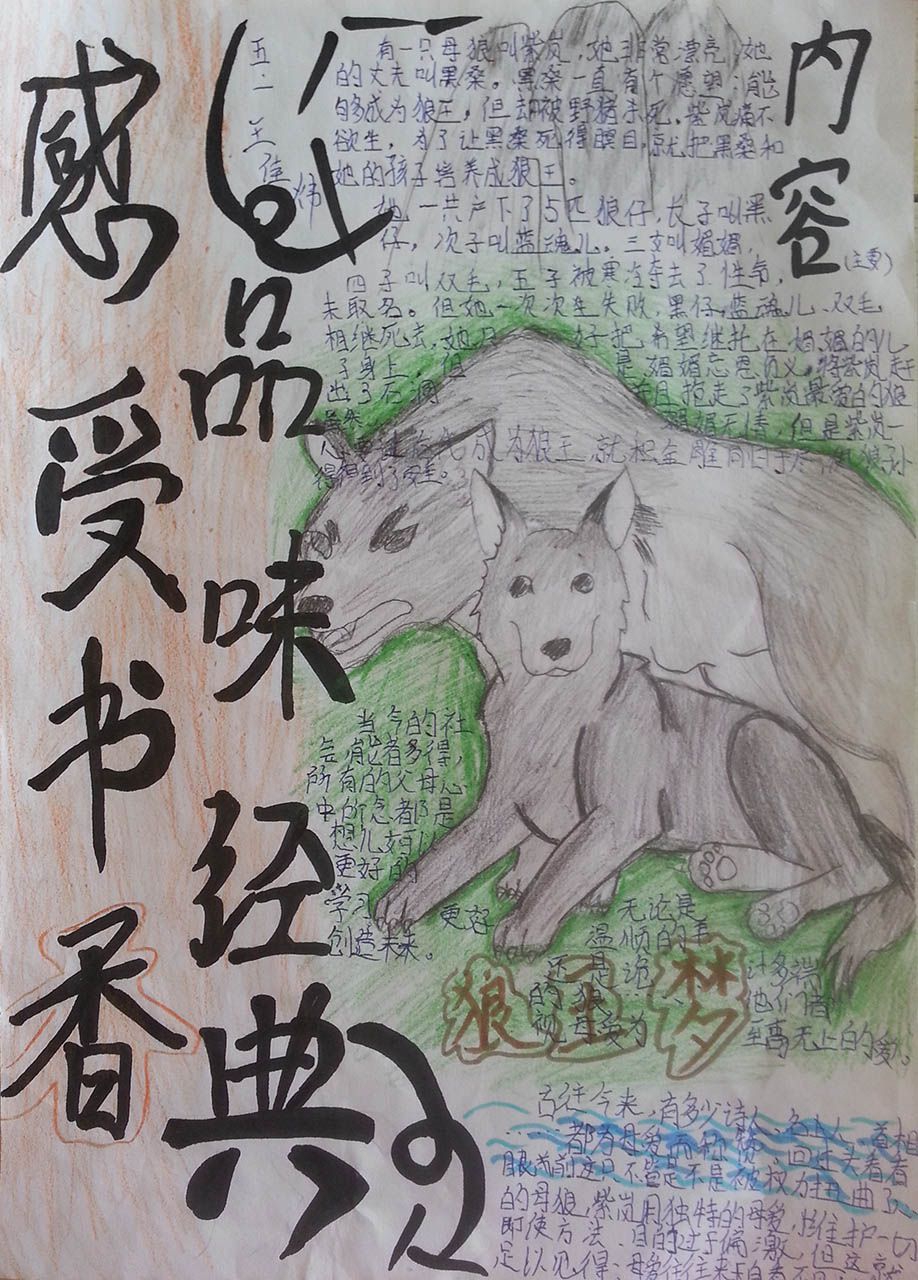 品味经典
感受书香
内容
(主要)
五二
王佳炜
有一只母狼叫紫岚,她非常漂亮,她
的丈夫叫黑桑。黑桑一直有个愿望:能
够成为狼王,但却被野猪杀死。紫岚痛不
欲生,为了让黑桑死得瞑目,就把黑桑和
她的孩子培养成狼王。
她一共产下了5匹狼仔,长子叫黑
仔,次子叫蓝魂儿,三女叫媚媚,
四子叫双毛,五子被寒冷夺去了性命,
未取名。但她一次次失败,黑仔,蓝魂儿、双毛
相继死去,她只好把希望继托在媚媚的儿
子身上,但是媚媚忘恩负义,将紫岚赶
出了石洞
抱走了紫岚最爱的狼
但是紫岚一
成为狼王,就和金雕同归于尽,狼孙
得到了安全。
当今的社
会,能者多得,
所有的父母心
中的信念都是
想儿女可以
更好的
学习 更好
创造未来。
无论是
温顺的羊
还是诡计多端
的狼 他们都
视母爱为至高无上的爱。
狼王梦
古往今来,有多少诗人、名人、首相
……都为母爱而称赞,回过头看看
眼前这只不管是不是被权力扭曲了
的母狼,紫岚用独特的母爱,维护一切
即使方法、目的过于偏激,但这就
足以见得,母爱往往来